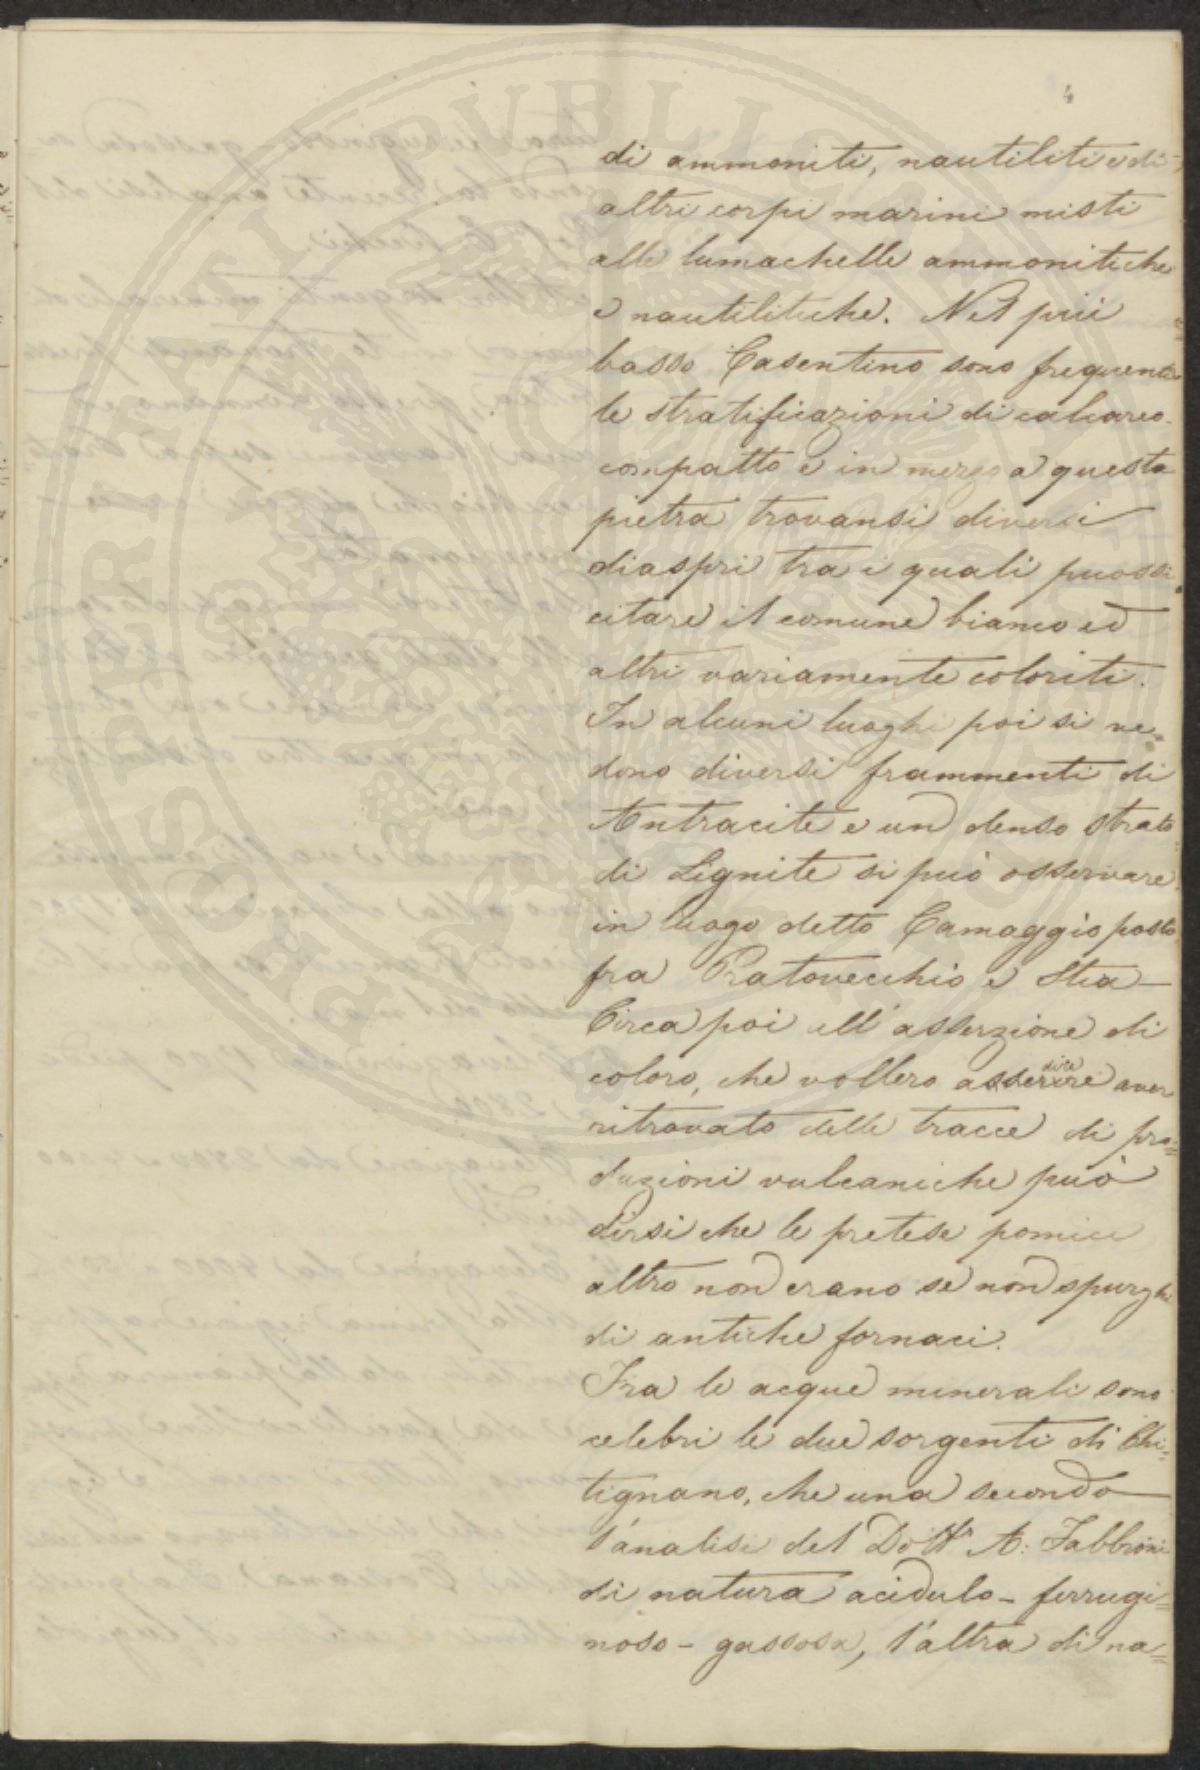 4
di ammoniti, nautiliti e di
altri corpi marini misti
alle lumachelle ammonitiche
e nautilitiche. Nel più
basso Casentino sono frequenti
le stratificazioni di calcareo
compatto e in mezzo a questa
pietra trovansi diversi
diaspri tra i quali puossi
citare il comune bianco ed
altri variamente coloriti.
In alcuni luoghi poi si ve=
dono diversi frammenti di
Antracite e un denso strato
di Lignite si può osservare
in luogo detto Camaggio posto
fra Pratovecchio e Stia—
Circa poi all'asserzione di
coloro, che vollero asserire aver
dire
ritrovato delle tracce di pro=
duzioni vulcaniche può
dirsi che le pretese pomici
altro non erano se non spurghi
di antiche fornaci.
Fra le acque minerali sono
celebri le due sorgenti di Chi=
tignano, che una secondo
l'analisi del Dott.r A: Fabbroni
di natura acidulo - ferrugi=
noso - gassosa, l'altra di na=